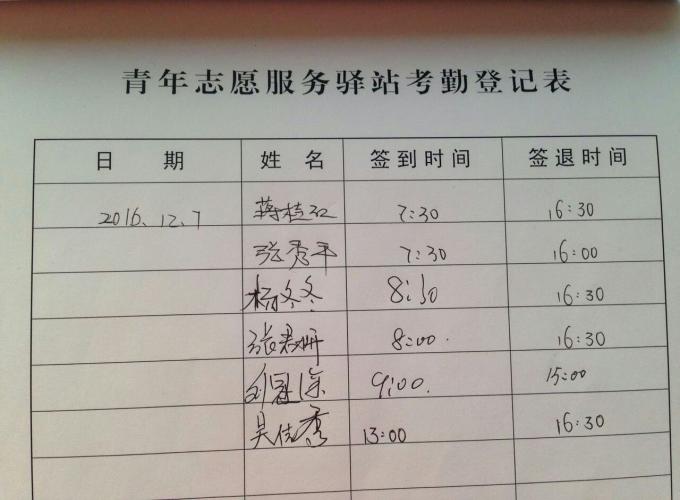 青年志愿服务驿站考勤登记表
日 期 姓 名 签到时间 签退时间
2016.12.7 蒋桂红 7:30 16:30
张秀平 7:30 16:00
杨冬冬 8:30 16:30
张君妍 8:00. 16:30
刘 9:00. 15:00
吴佳秀 13:00 16:30